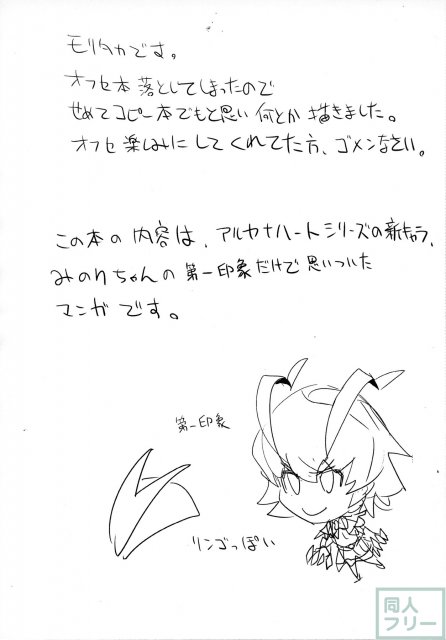 モリタカです。
オフセ本落としてしまったので
せめてコピー本でもと思い何とか描きました。
オフセ楽しみにしてくれてた方、ゴメンなさい。
この本の内容は、アルカナハートシリーズの新キャラ、
みのりちゃんの第一印象だけで思いついた
マンガです。
第一印象
リンゴっぽい
同人
フリー